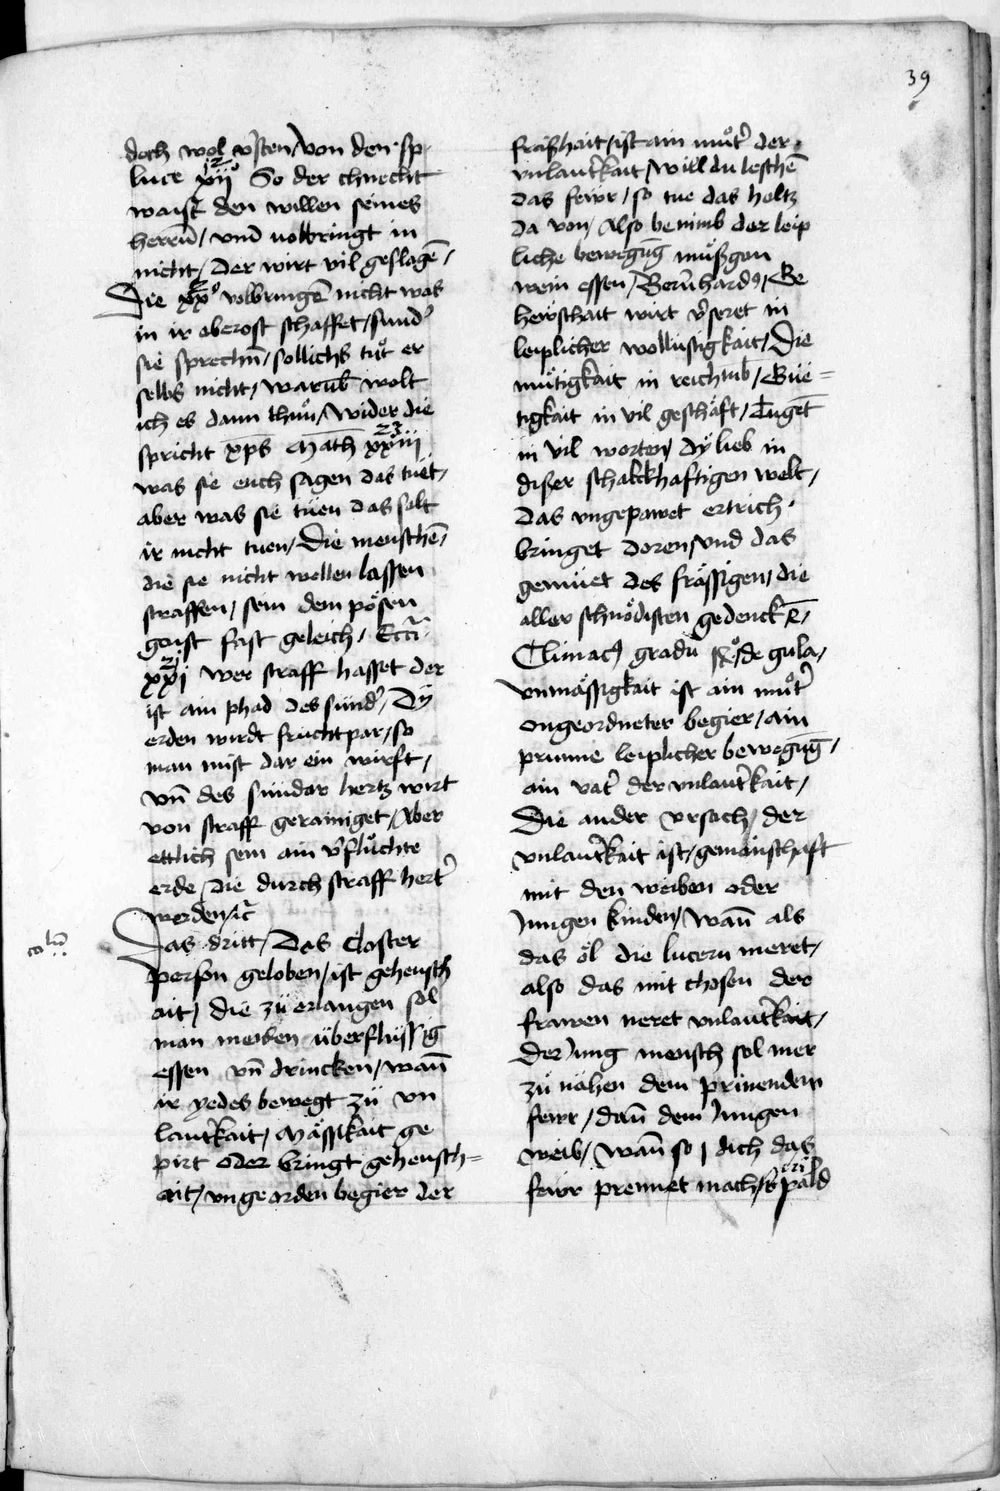 39
doch wol v̾sten / von den sp
luce xij° So der chnecht
waist den willen seines
herrn̄ / vnd̄ uolbringt in
nicht / der wirt vil geslagē /
Die xx° volbringē nicht was
in ir oberost schaffet / sund̾
sie sprechn̄ / sollichs tuͦt er
selbs nicht / warūb wolt
ich es dann thuͦn / wider die
spricht xp̄s Math̄ xxiij
was sie euch sagen das tuet /
aber was sie tuen das solt
ir nicht tuen / Die menschē /
die sie nicht wellen lassen
straffen / sein dem pösen
geist fast geleich / Ecci̾
xxj wer straff hasset der
ist ain phad des sünd̾ / Dÿ
erden wirdt fruchtpar / so
man mist dar ein wirft /
vn̄ des sünder hertz wirt
von straff gerainiget / Aber
ettlich sein ain v̾fluͦchte
erde / die durch straff hert̾
werden / ꝛc̄
Das dritt / Das closter
person geloben / ist gehewsch
ait / die zü erlangen sol
man meiden überflüssig
essen vn̄ drincken / wan̄
ir yedes bewegt zü vn
laut̾kait / Mässikait ge
pirt oder bringt gehewsch=
ait / vngeorden begier der
fraßhait / ist ain muͦt̾ der
vnlaut̾kait / will du leschē
das fewr / so tue das holtz
da von / Also be nimb der leip
liche bewegūg müßgen
wein essen / Bern̄hardꝰ / Ge
hewschait wirt v̾seret in
leiplicher wollustigkait / Die
mütigkait in reichtūb / Güe=
tigkait in vil geschäft / Tugēt
in vil worten / dÿ lieb in
diser schalckhaftigen welt /
Das vngepawet ertrich
bringet doren / vnd das
gemüet des frässigen / die
aller schnödisten gedenck ꝛc̄
Climacꝰ gradu de gula /
Vnmässigkait ist ain muͦt̾
ongeordneter begier / ain
prunne leiplicher bewegūg /
ain vat̾ der vnlaut̾kait /
Die ander vrsach / der
vnlaut̾kait ist / gemainschaft
mit den weiben oder
Jungen kinden / wan̄ als
das öl die lucern meret /
also das mit chosen der
frawen neret vnlaut̾kait /
Der Jung mensch sol mer
zü nähen dem prinendem
fewr / dan̄ dem Jungen
weib / wan̄ so j dich das
fewr prennet mach / pald